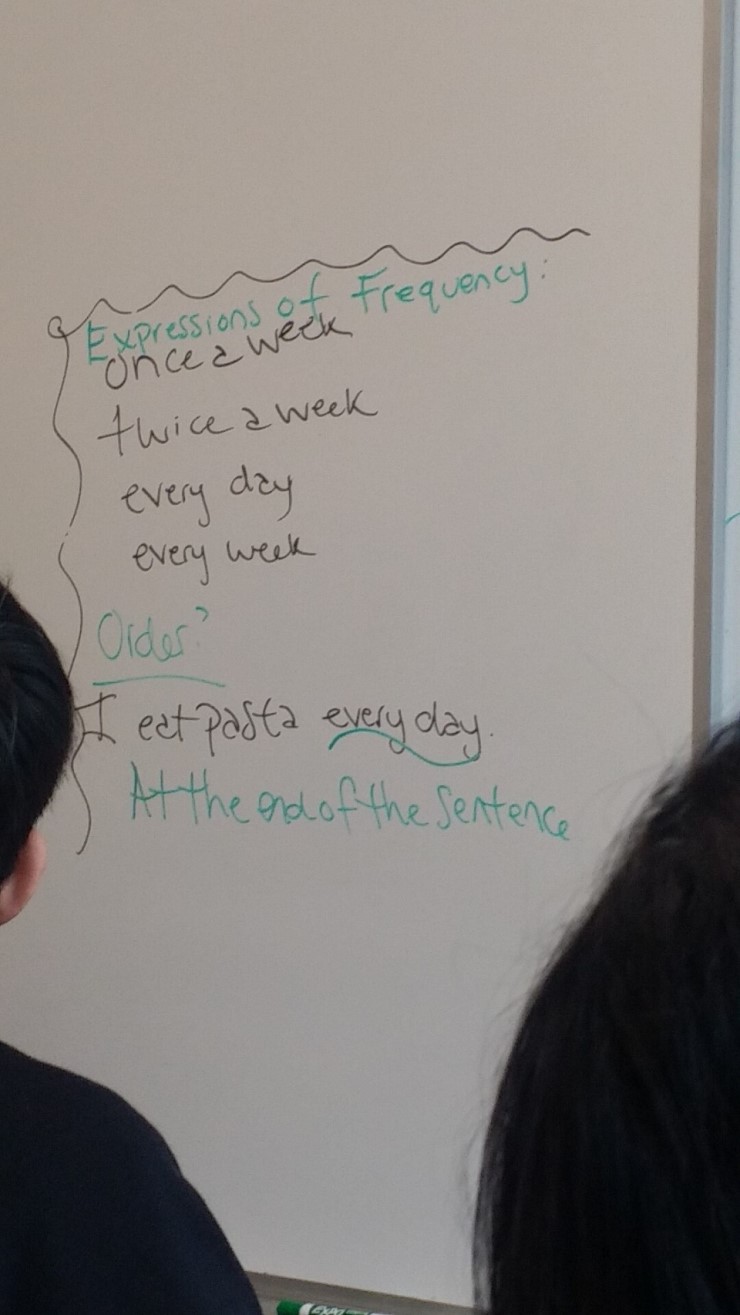 Expressions of Frequency:
once a week
twice a week
every day
every week
Order?
I eat pasta every day.
At the end of the sentence
EXPO